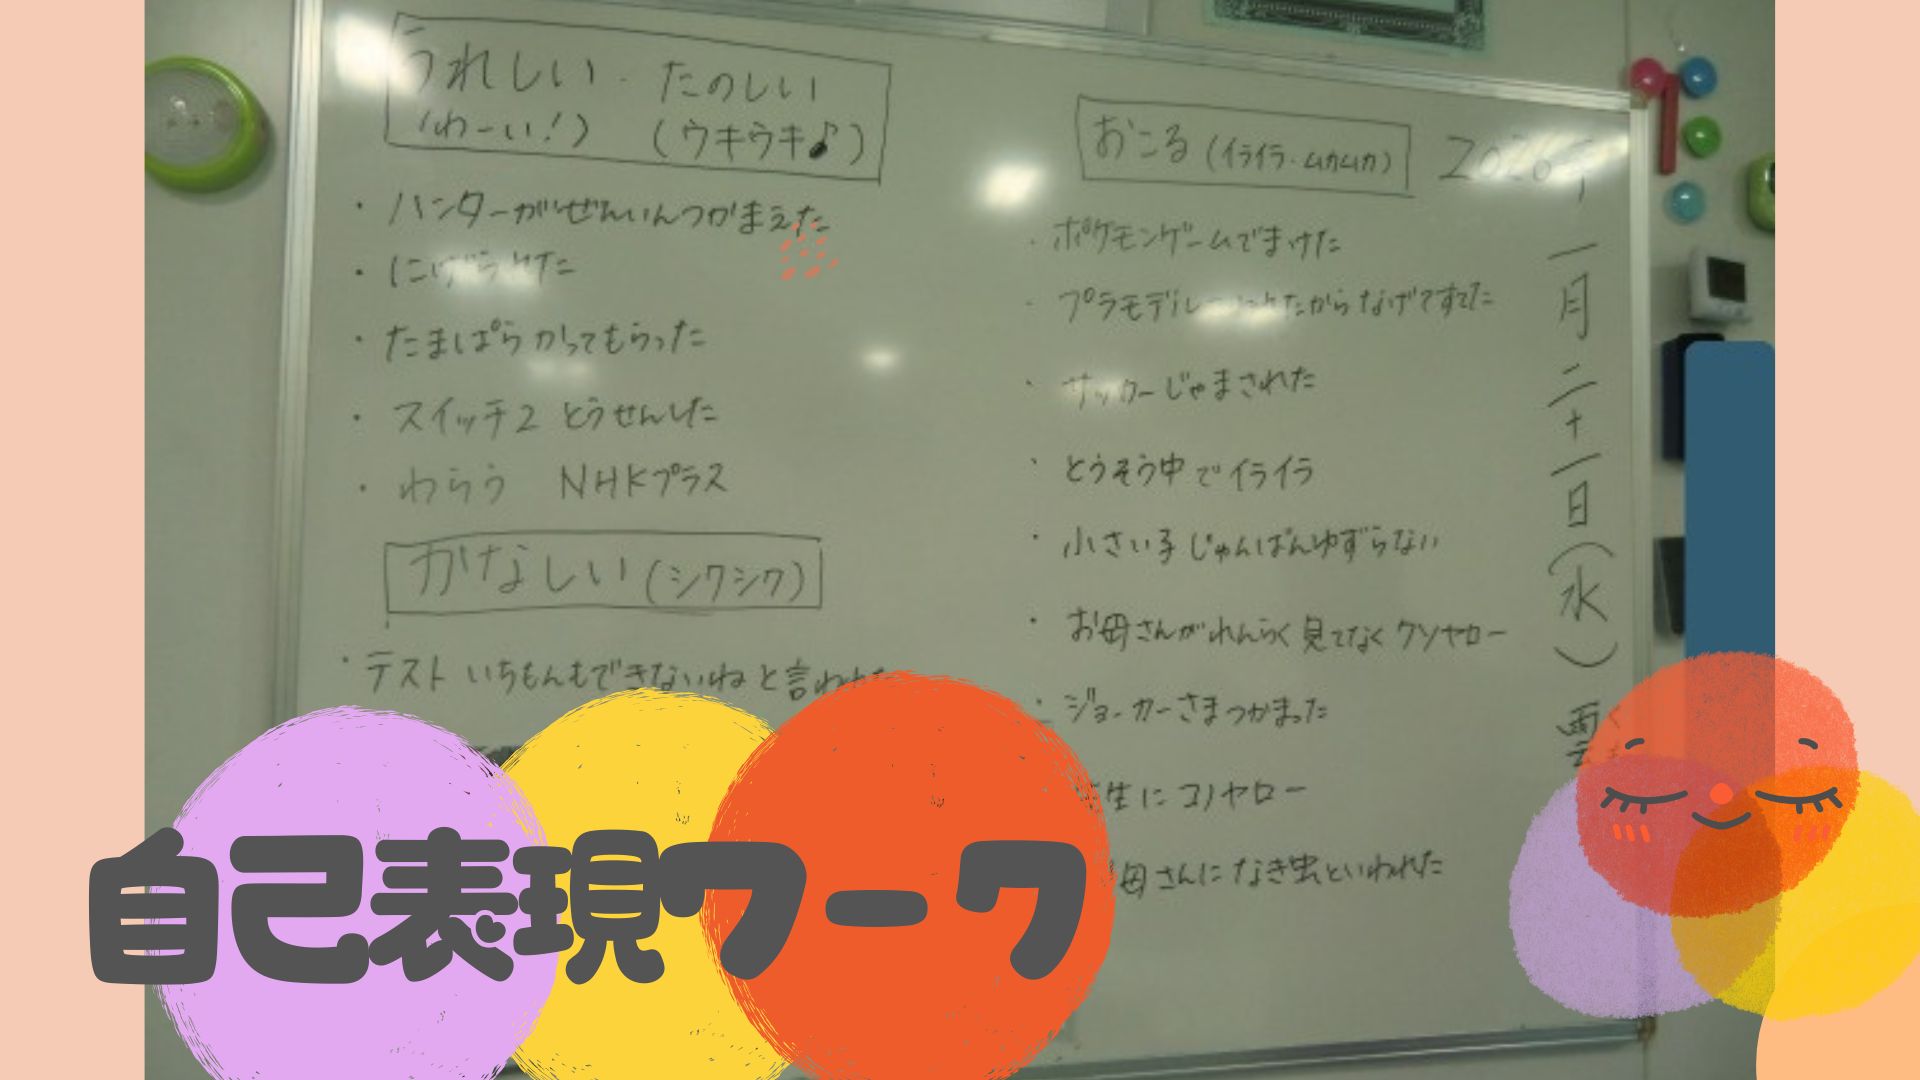 うれしい・たのしい
(わーい!) (ウキウキ♪)
・ハンターがぜんいんつかまえた
・にげ
・たまぱらかってもらった
・スイッチ2 とうせんした
・わらう NHKプラス
かなしい(シクシク)
・テスト いちもんもできないねと言われた
おこる(イライラ・ムカムカ)
・ポケモンゲームでまけた
・プラモデル たからなげてすてた
・サッカーじゃまされた
・とうそう中でイライラ
・小さい子じゅんばんゆずらない
・お母さんがれんらく見てなくクソヤロー
・ジョーカーさまつかまった
生にコノヤロー
母さんになき虫といわれた
2026年
一月二十一日(水)
自己表現ワーク